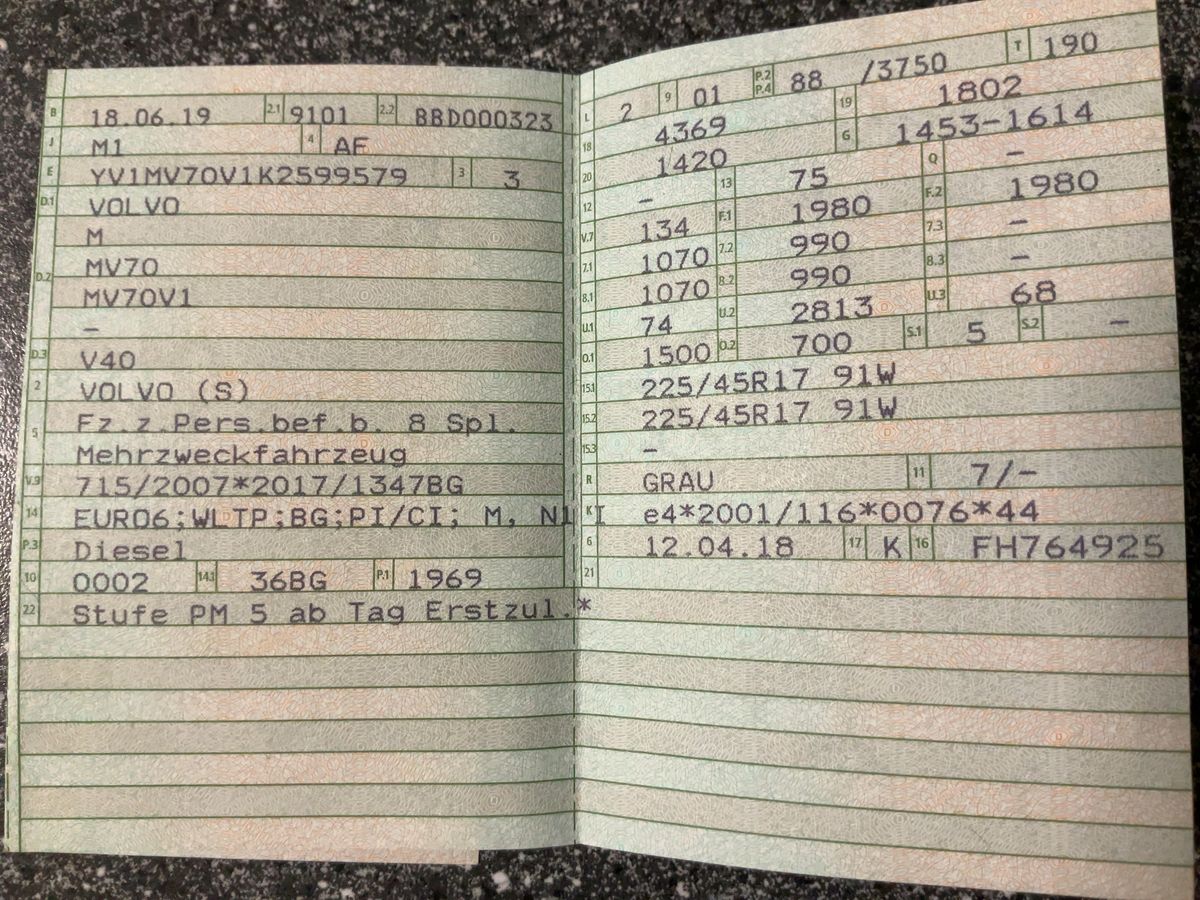 B 18.06.19 2.1 9101 2.2 BBD000323
J M1 4 AF
E YV1MV70V1K2599579 3 3
D.1 VOLVO
M
D.2 MV70
MV70V1
–
D.3 V40
2 VOLVO (S)
5 Fz.z.Pers.bef.b. 8 Spl.
Mehrzweckfahrzeug
V.9 715/2007*2017/1347BG
14 EURO6;WLTP;BG;PI/CI; M, N1 I
P.3 Diesel
10 0002 14.1 36BG P.1 1969
22 Stufe PM 5 ab Tag Erstzul.*
L 2 9 01 P.2 P.4 88 /3750 T 190
18 4369 19 1802
20 1420 G 1453-1614
12 – 13 75 Q –
V.7 134 F.1 1980 F.2 1980
7.1 1070 7.2 990 7.3 –
8.1 1070 8.2 990 8.3 –
U.1 74 U.2 2813 U.3 68
O.1 1500 O.2 700 S.1 5 S.2 –
15.1 225/45R17 91W
15.2 225/45R17 91W
15.3 –
R GRAU 11 7/–
K e4*2001/116*0076*44
6 12.04.18 17 K 16 FH764925
21